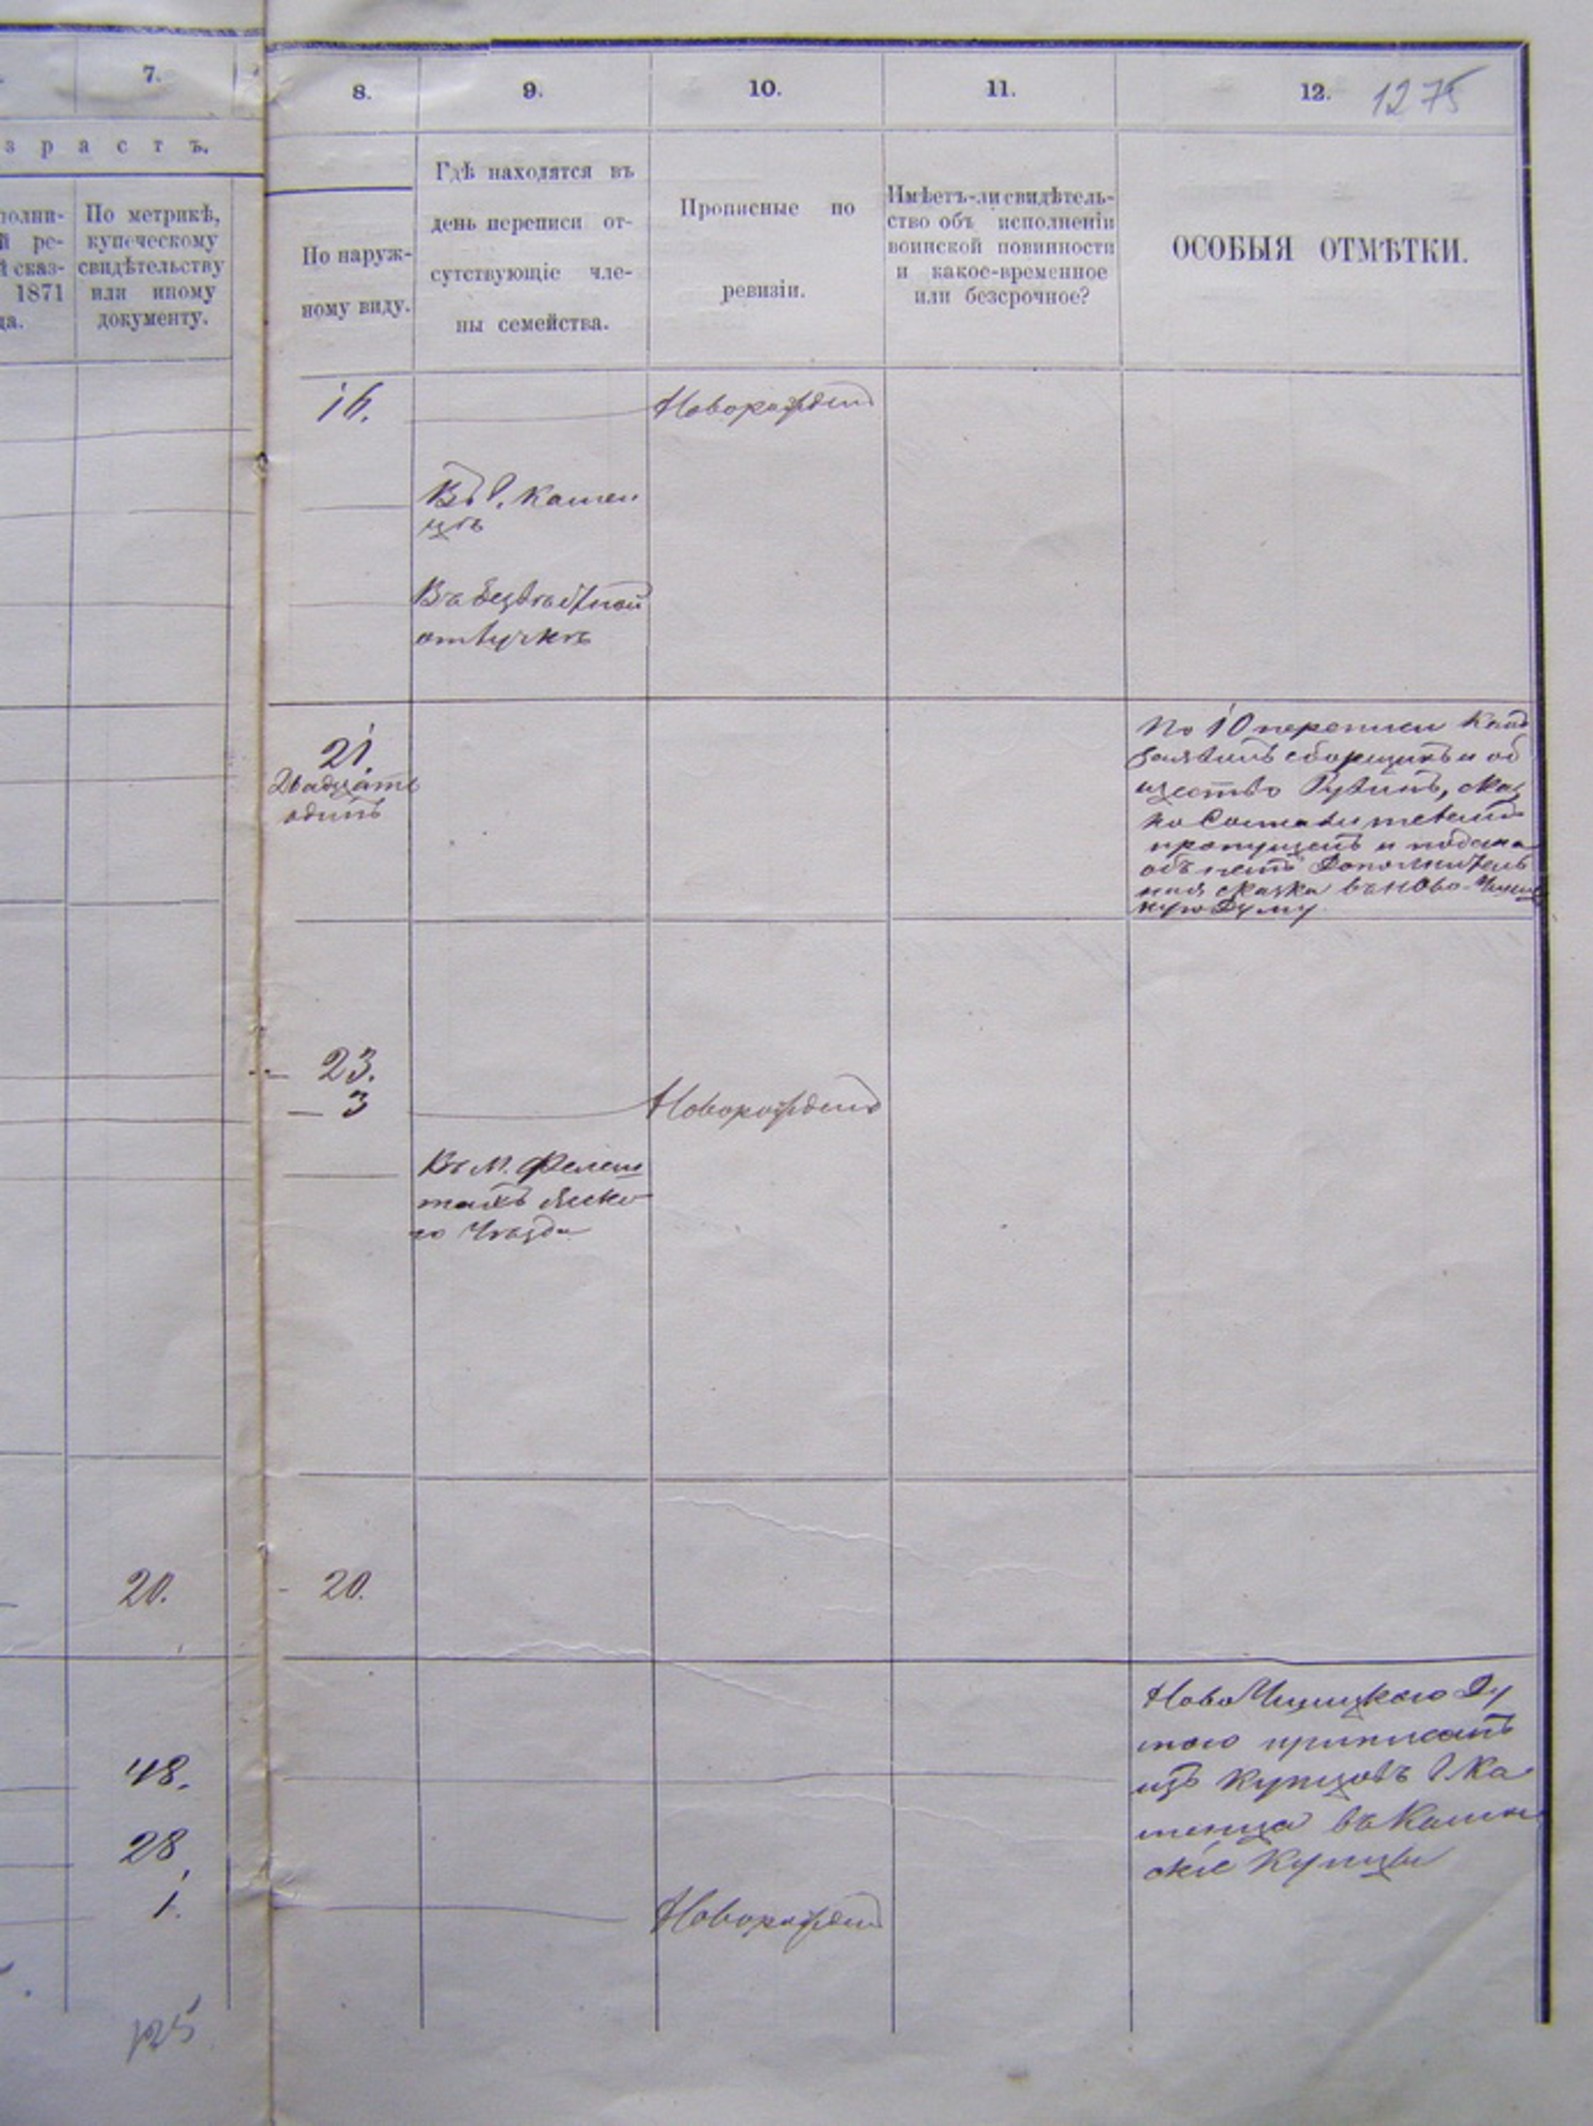 7.
8.
9.
10.
11.
12.
1275
зрастъ.
полни-
й ре-
сказ-
1871
да.
По метрикѣ,
купеческому
свидѣтельству
или иному
документу.
По наруж-
ному виду.
Гдѣ находятся въ
день переписи от-
сутствующіе чле-
ны семейства.
Прописные по
ревизіи.
Имѣетъ-ли свидѣтель-
ство объ исполненіи
воинской повинности
и какое-временное
или безсрочное?
ОСОБЫЯ ОТМѢТКИ.
16.
Новорожден
Въ г. Камен
цѣ
Въ безвѣстной
отлучкѣ
21.
Двадцать
одинъ
По 10 переписи
сборщикъ и об
щество
пропущенъ и подана
объ немъ дополнитель
ная сказка въ Ново-
кую Думу
23.
3
Новорожден
Въ М. Фелеш
тахъ Яско
го Уѣзда
20.
20.
Ново Ушицкою Ду
мою приписанъ
изъ купцовъ г. Ка
менца въ
скіе купцы
48.
28
1.
Новорожден
125